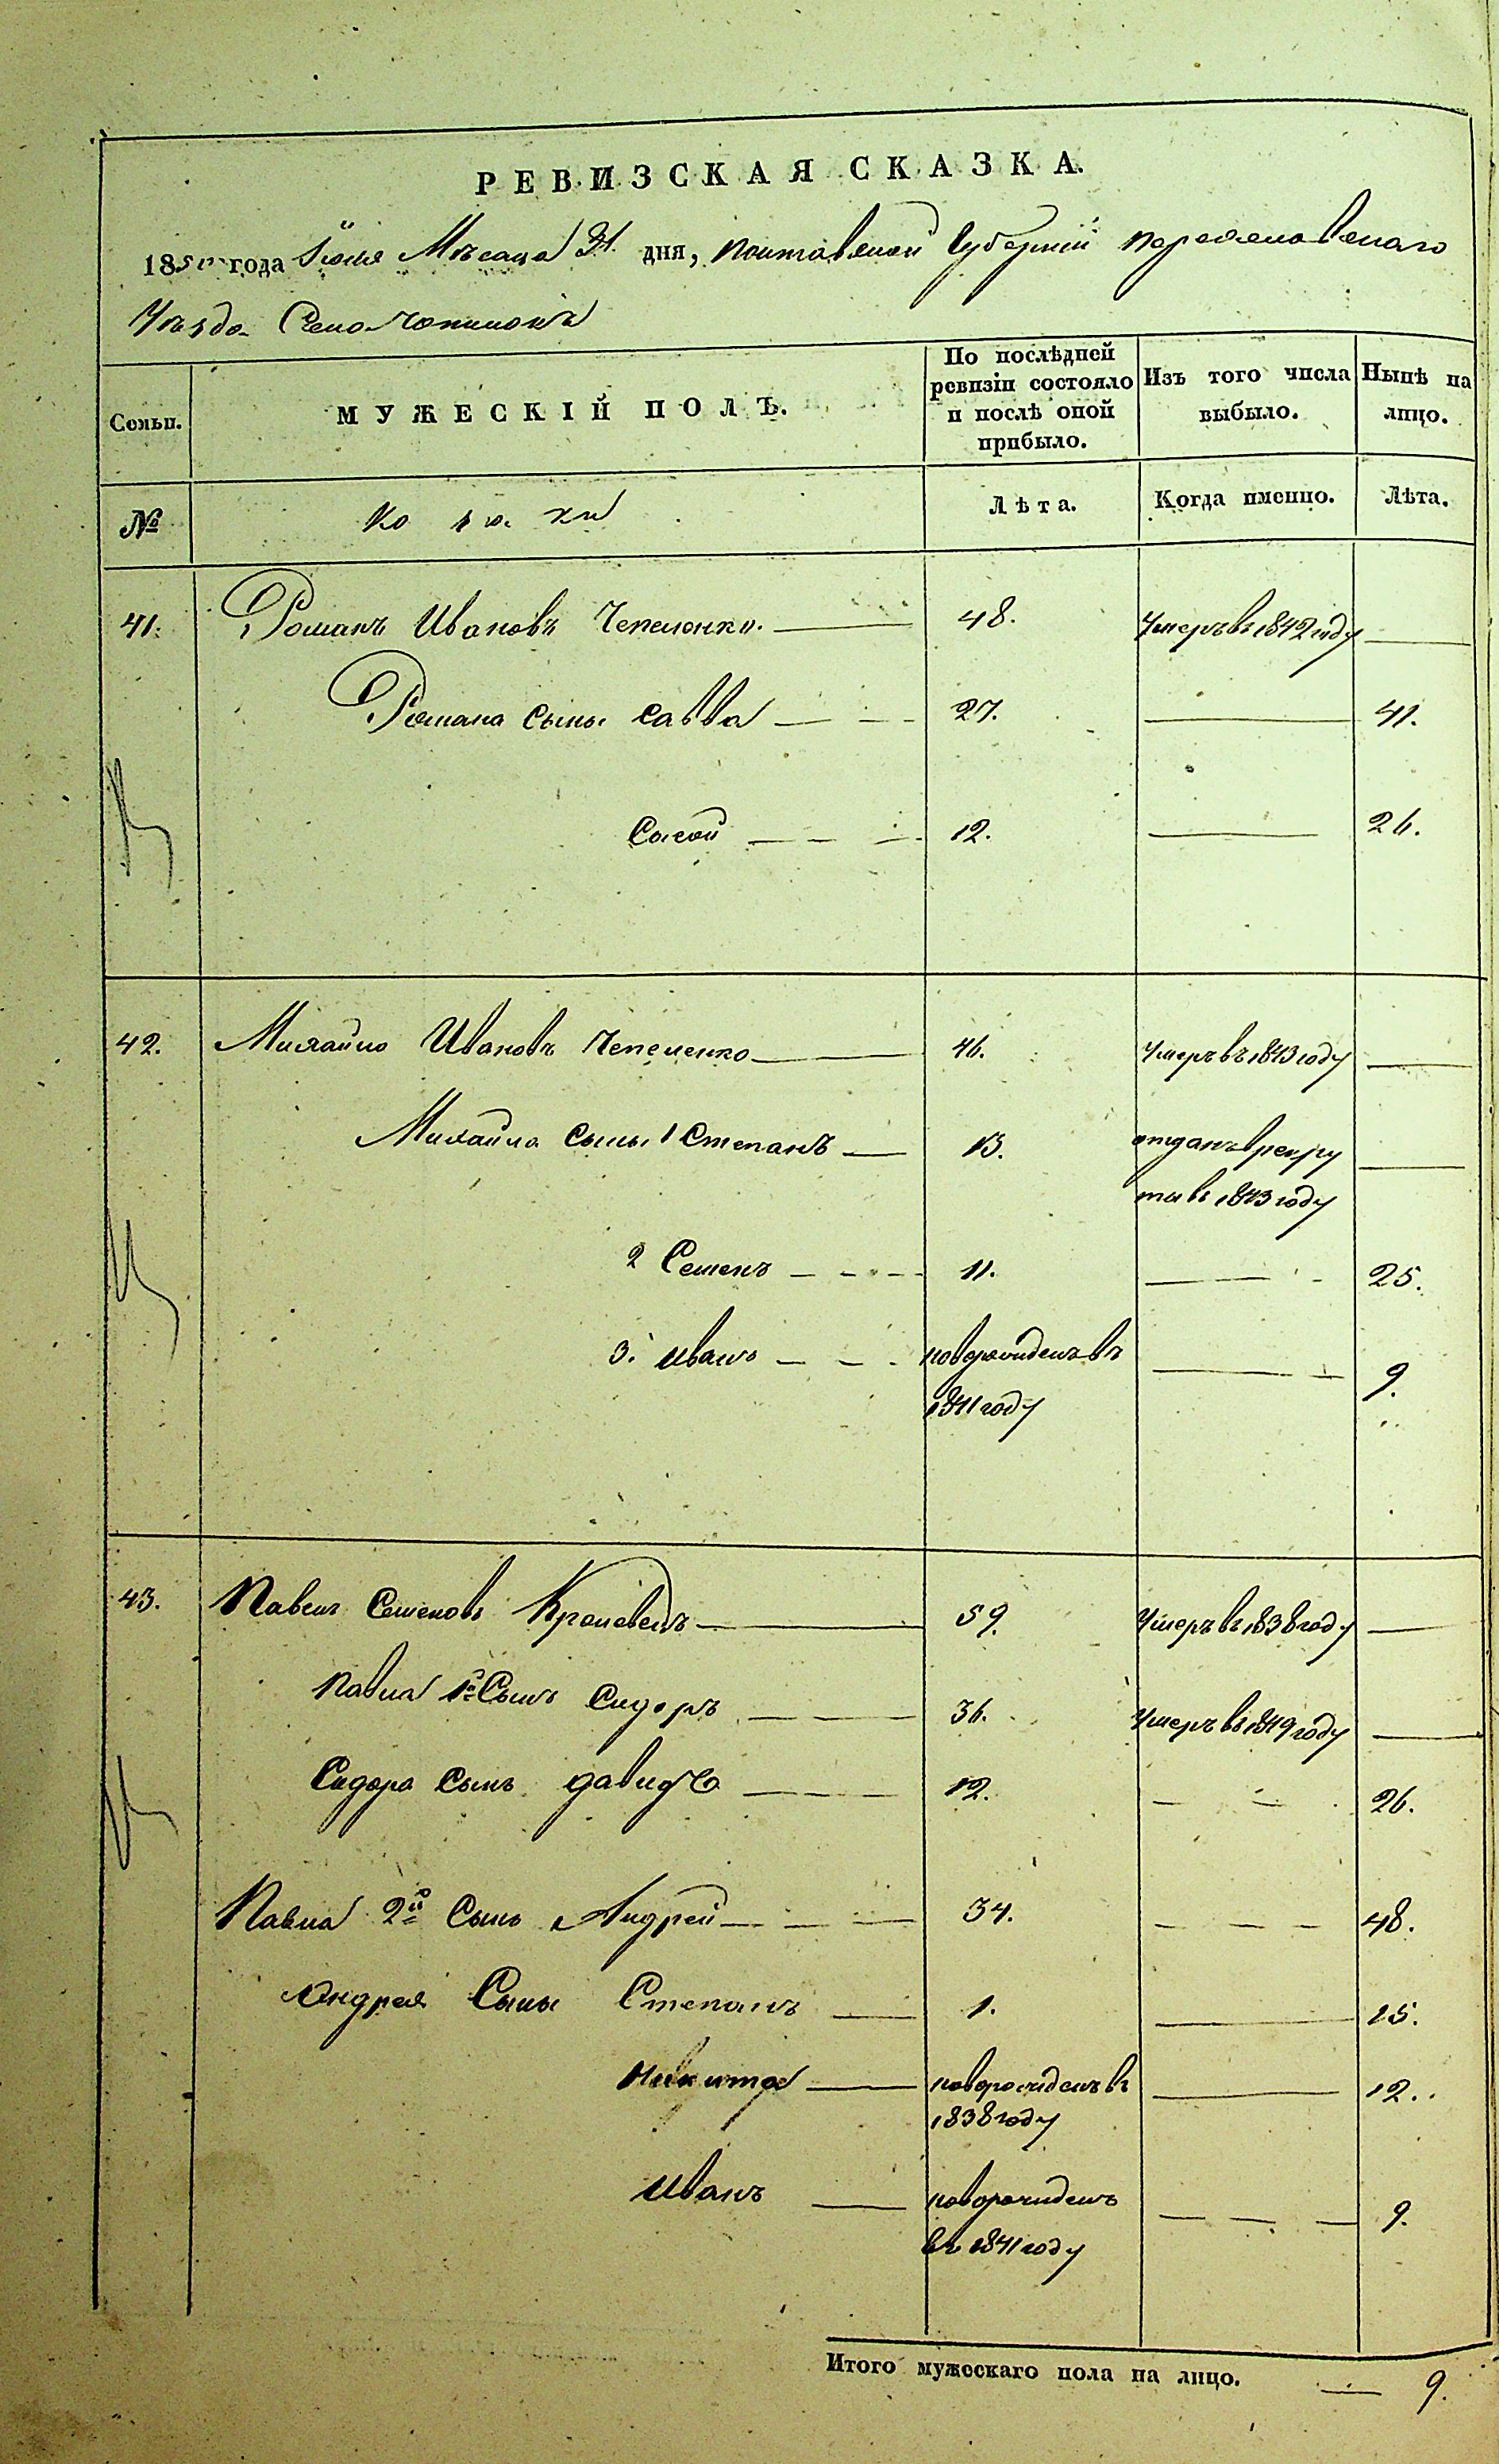 РЕВИЗСКАЯ СКАЗКА.
1850 года Июля Мѣсяца 31 дня, Полтавской Губерніи Переяславскаго
Уѣзда Село
Семьи. МУЖЕСКІЙ ПОЛЪ. По послѣдней ревизіи состояло и послѣ оной прибыло. Изъ того числа выбыло. Нынѣ на лицо.
№ Козаки Лѣта. Когда именно. Лѣта.
41. Романъ Ивановъ Чепеленко. 48. Умеръ въ 1842 году
Романа сыны Савва 27. 41.
Сысой 12. 26.
42. Михайло Ивановъ Чепеленко 46. Умеръ въ 1843 году
Михайла сыны 1 Степанъ 13. отданъ в рекру
ты въ 1843 году
2 Семенъ 11. 25.
3. Иванъ новорожденъ въ 9.
1841 году
43. Павелъ Семеновъ Кролевецъ 59. Умеръ въ 1838 году
Павла 1й Сынъ Сидоръ 36. Умеръ въ 1849 году
Сидора Сынъ Давидъ 12. 26.
Павла 2й Сынъ Андрей 34. 48.
Андрея Сыны Степанъ 1. 15.
Никита новорожденъ въ 12.
1838 году
Иванъ новорожденъ 9.
въ 1841 году
Итого мужескаго пола на лицо. 9.